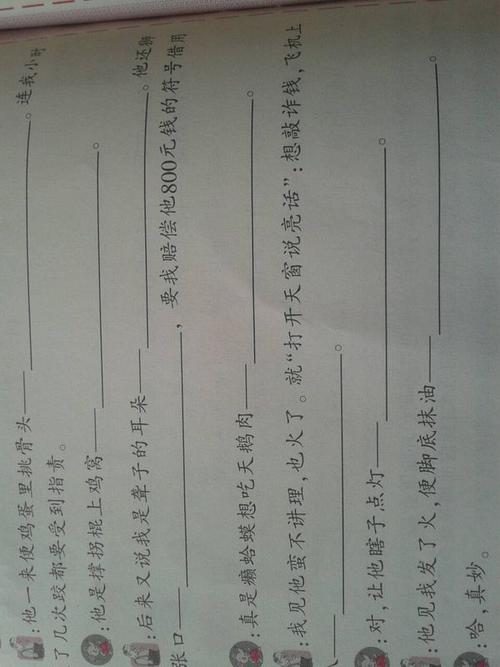 :他一来便鸡蛋里挑骨头——________。连我小时
了几次跤都要受到指责。
:他是撑拐棍上鸡窝——________。
:后来又说我是聋子的耳朵——________。他还狮
张口——________，要我赔偿他800元钱的符号借用
:真是癞蛤蟆想吃天鹅肉——________。
:我见他蛮不讲理,也火了。就“打开天窗说亮话”:想敲诈钱,飞机上
——________。
:对,让他瞎子点灯——________。
:他见我发了火,便脚底抹油——________。
:哈,真妙。